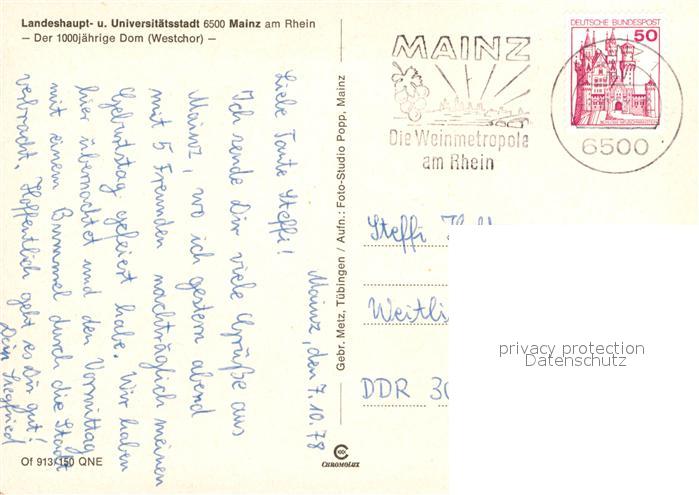 Landeshaupt- u. Universitätsstadt 6500 Mainz am Rhein
– Der 1000jährige Dom (Westchor) –
Mainz, den 7.10.78
Liebe Tante Steffi!
Ich sende Dir viele Grüße aus
Mainz, wo ich gestern abend
mit 5 Freunden nachträglich meinen
Geburtstag gefeiert habe. Wir haben
hier übernachtet und den Vormittag
mit einem Bummel durch die Stadt
verbracht. Hoffentlich geht es Dir gut!
Dein Siegfried
Of 913/150 QNE
Gebr. Metz, Tübingen / Aufn.: Foto-Studio Popp, Mainz
CHROMOLUX
MAINZ
Die Weinmetropole
am Rhein
DEUTSCHE BUNDESPOST
50
6500
Steffi
Weitli
DDR 30
privacy protection
Datenschutz